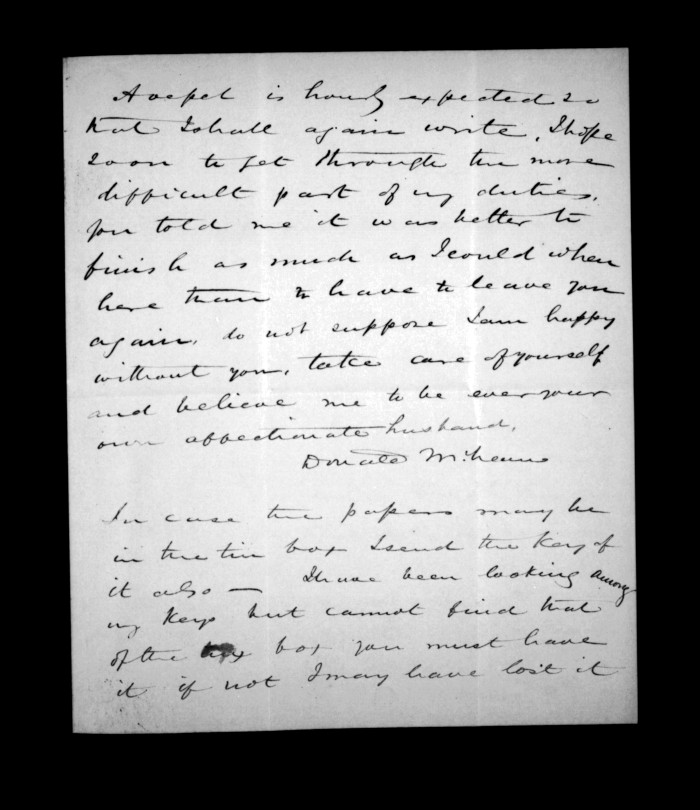 A vessel is hourly expected so
that I shall again write, I hope
soon to get through the more
difficult part of my duties.
you told me it was better to
finish as much as I could when
here than to have to leave you
again. do not suppose I am happy
without you. take care of yourself
and believe me to be ever your
own affectionate husband,
Donald McLean
In case the papers may be
in the tin box I send the key of
it also — I have been looking among
my keys but cannot find that
of the box you must have
it if not I may have lost it